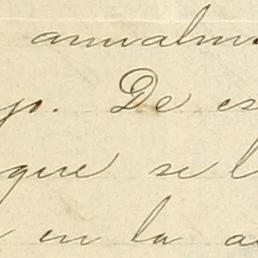 anualm
jo. De es
que se l
en la a